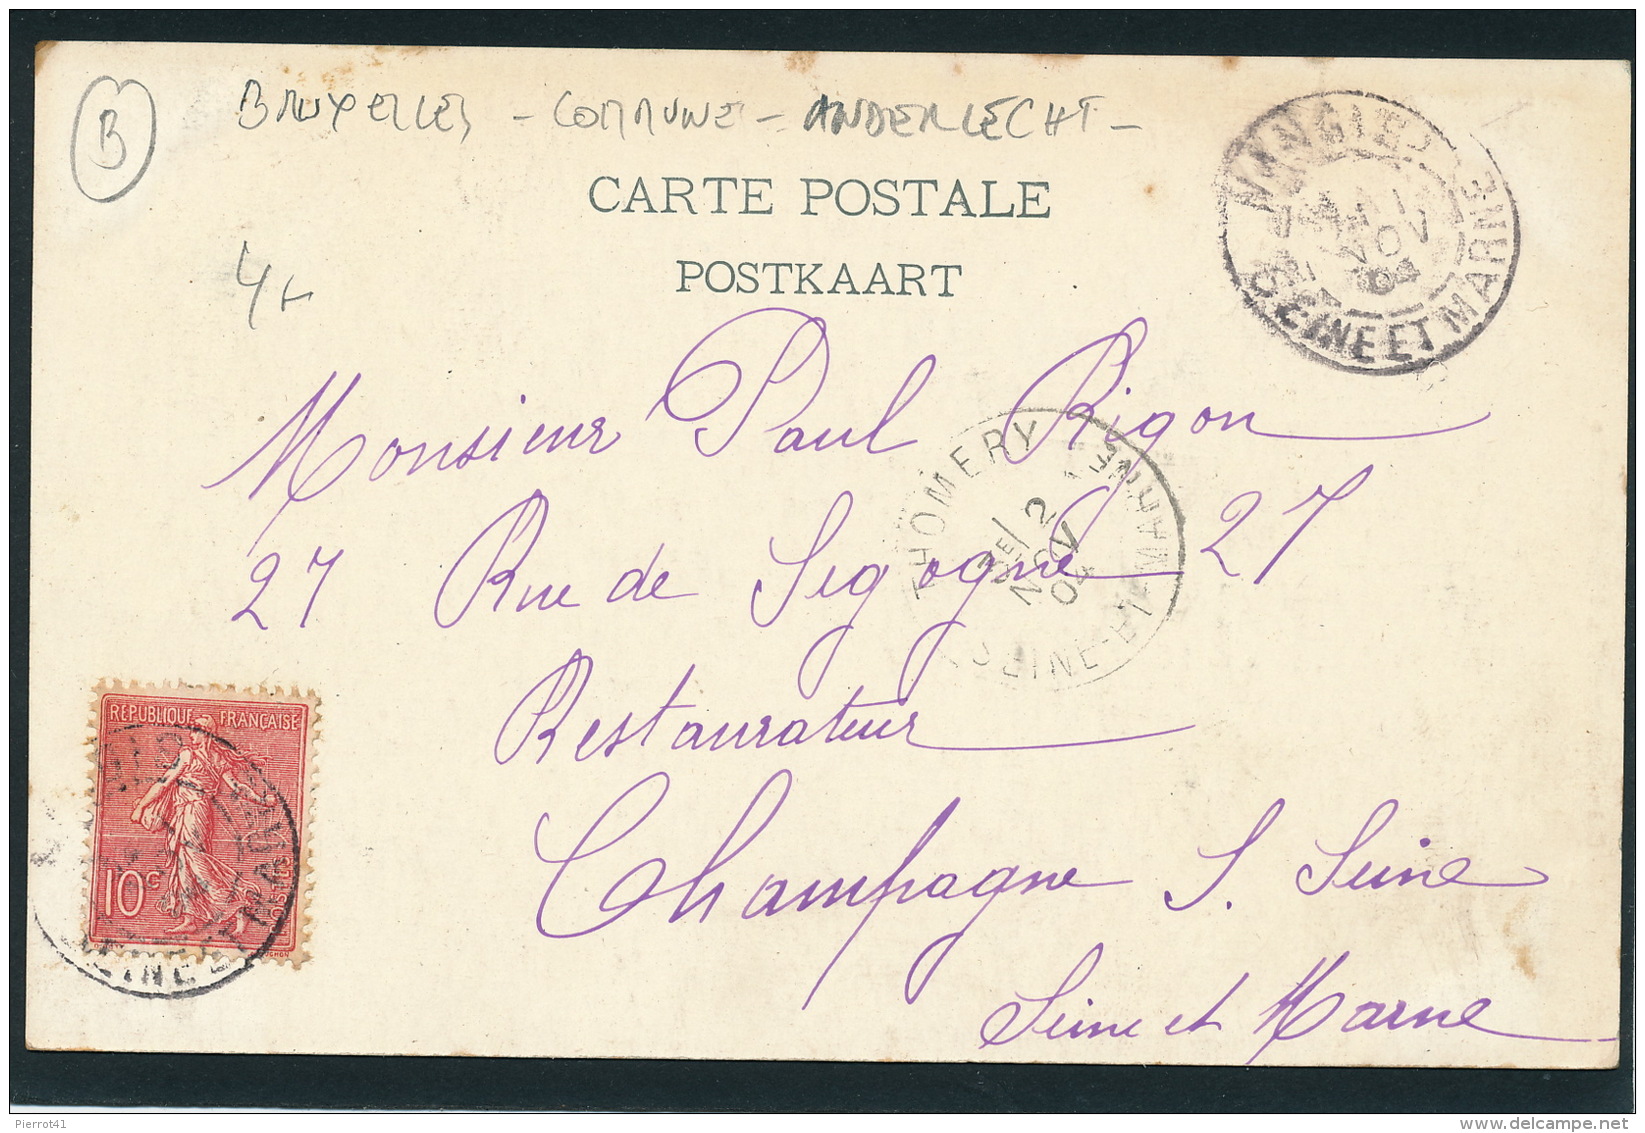 B
BRUXELLES - COMMUNE - ANDERLECHT -
CARTE POSTALE
POSTKAART
NANGIS
NOV
04
SEINE ET MARNE
Monsieur Paul Rigon
27 Rue de Sigogne 27
Restaurateur
Champagne S. Seine
Seine et Marne
THOMERY
2E / 2
NOV
04
SEINE-ET-MARNE
REPUBLIQUE FRANÇAISE
10 C
POSTES
Pierrot41
delcampe.net